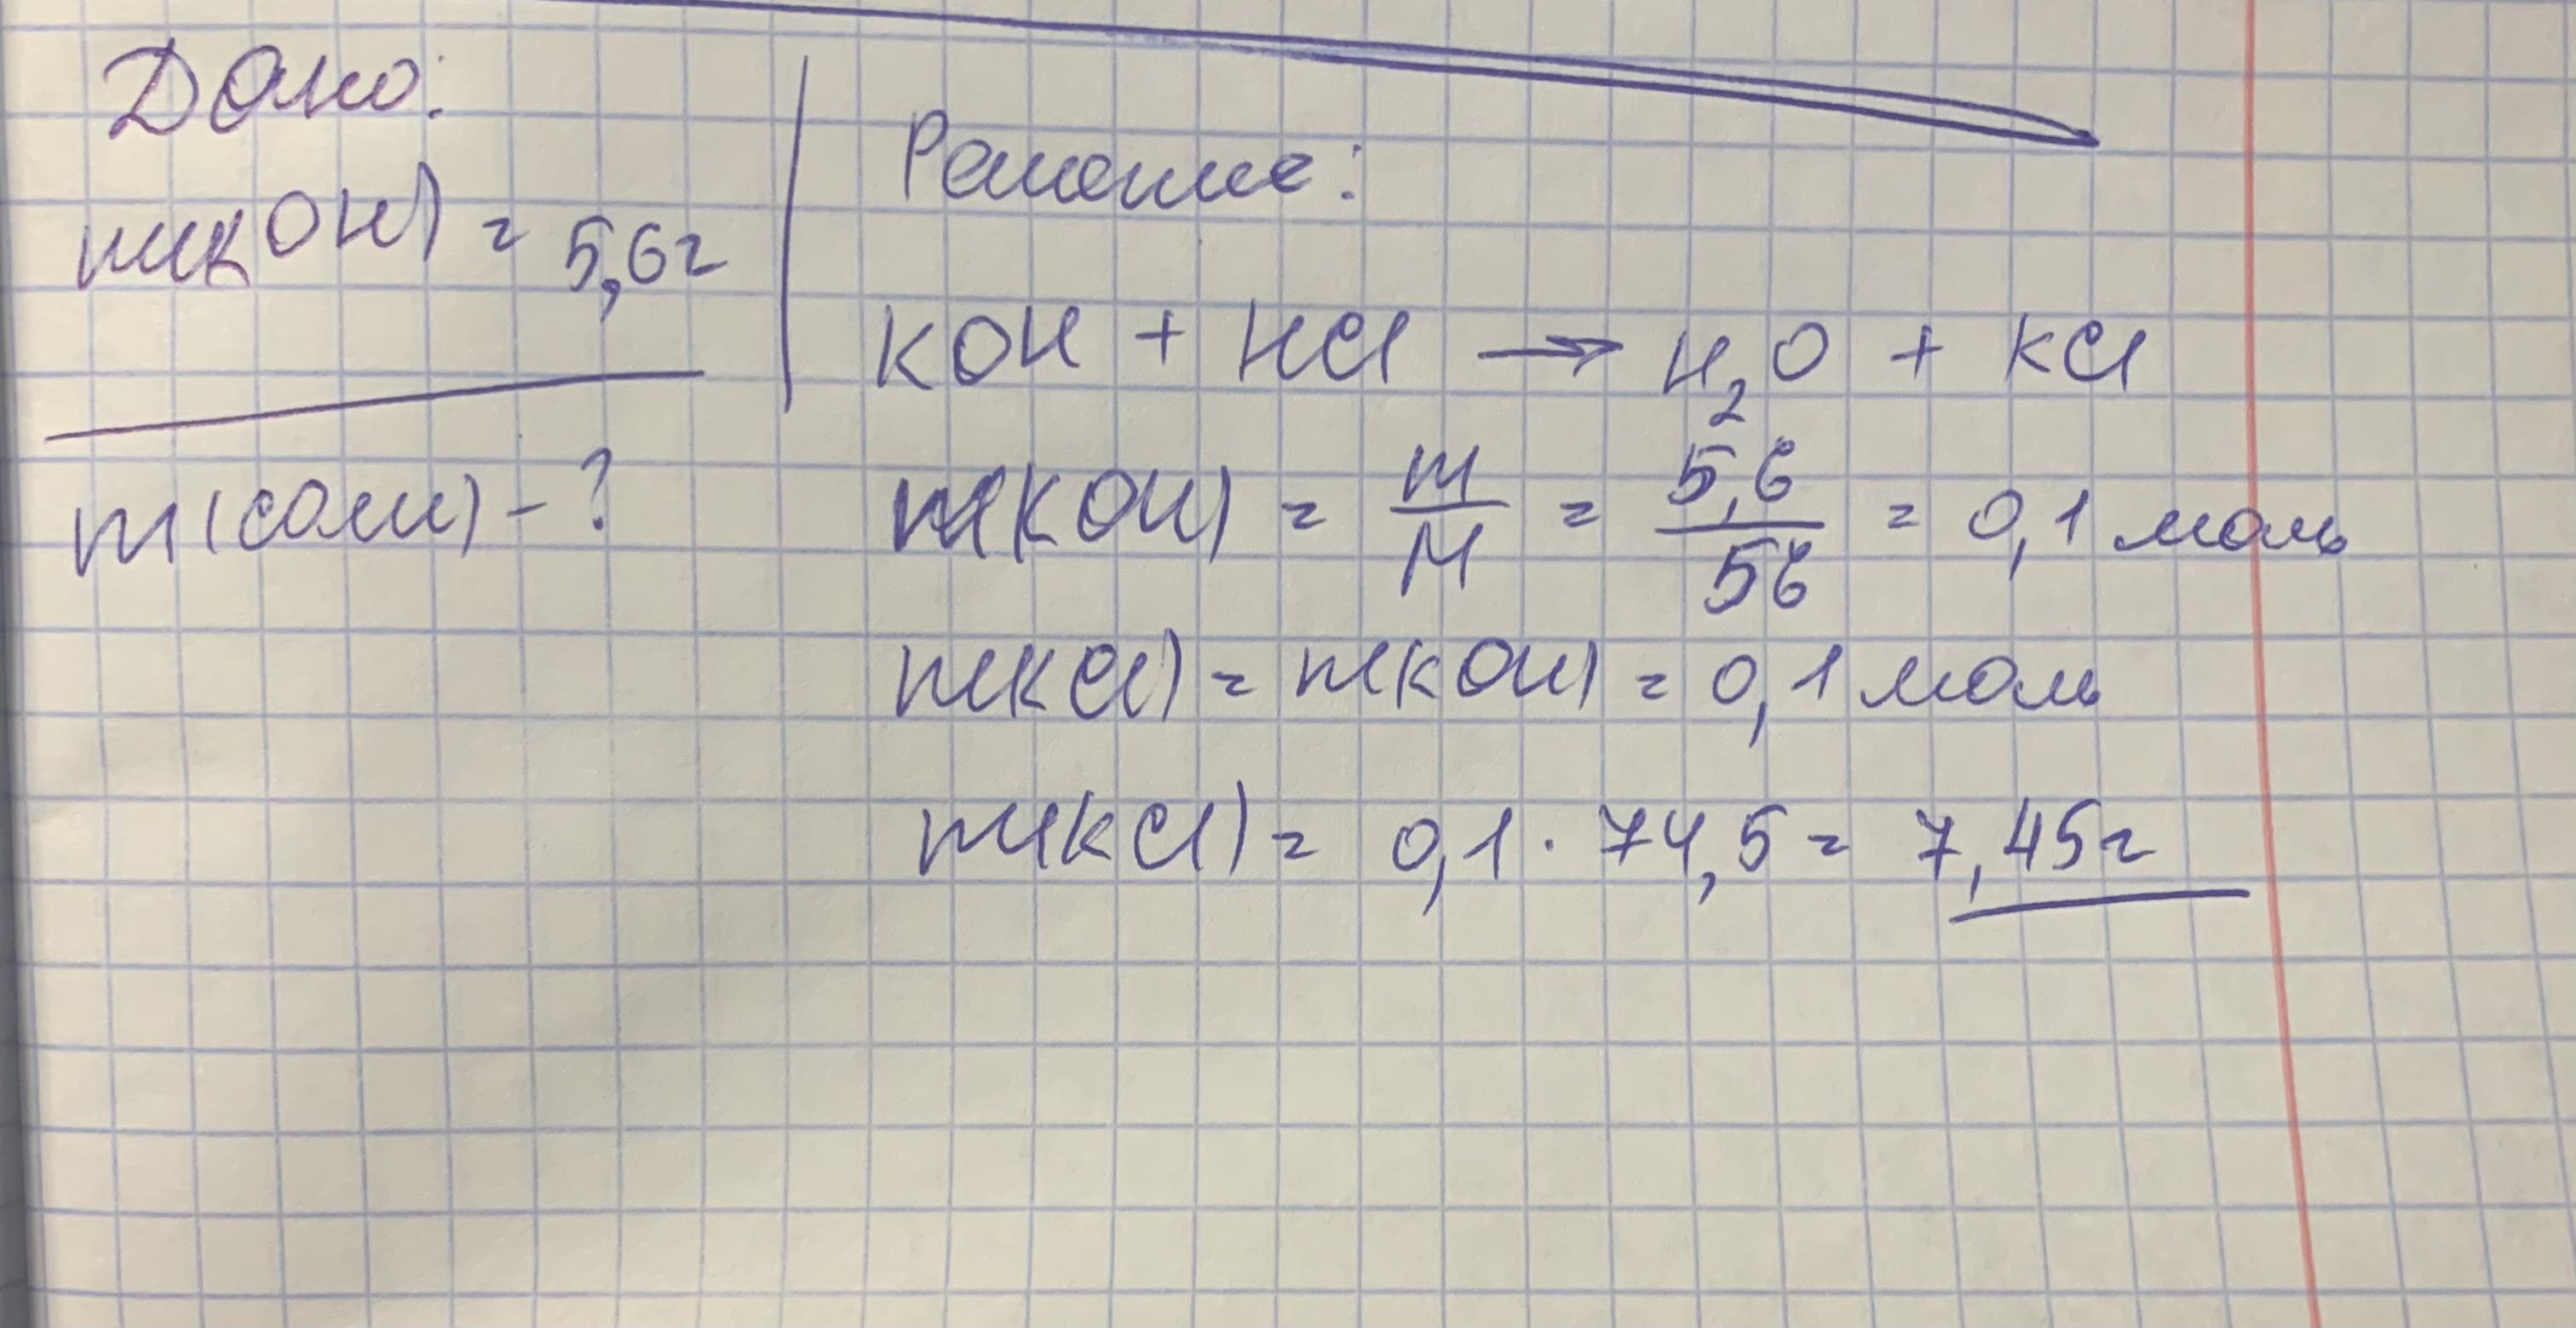 Дано:
m(KOH) = 5,6г
m(соли) - ?
Решение:
KOH + HCl → H₂O + KCl
m(KOH) = m/M = 5,6/56 = 0,1 моль
m(KCl) = m(KOH) = 0,1 моль
m(KCl) = 0,1 · 74,5 = 7,45г